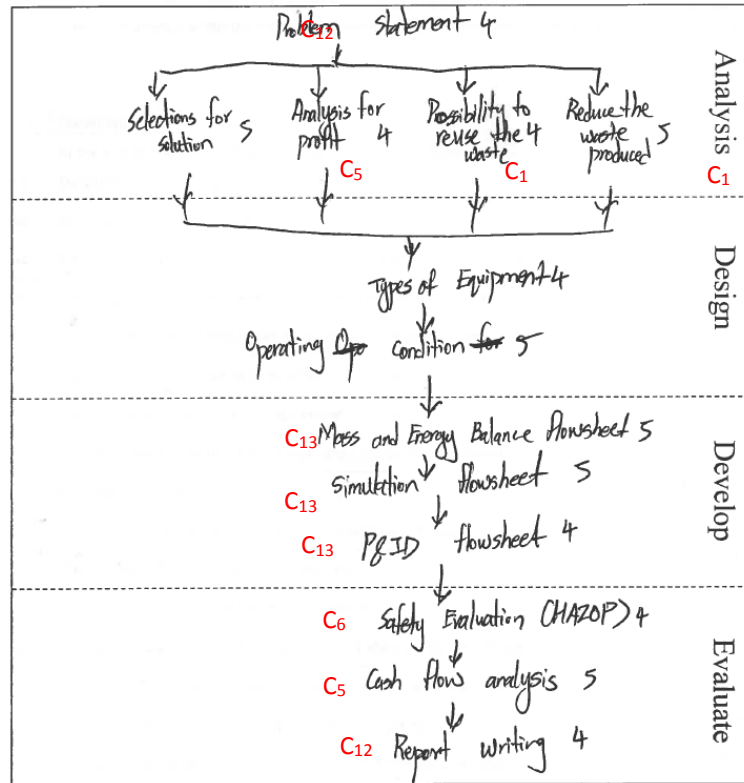 Problem statement 4
C12
Selections for solution 5
Analysis for profit 4
Possibility to reuse the waste 4
Reduce the waste produced 5
C5
C1
C1
Analysis
Types of Equipment 4
Operating Ope condition for 5
Design
C13 Mass and Energy Balance flowsheet 5
Simulation flowsheet 5
C13
C13 P&ID flowsheet 4
Develop
C6 Safety Evaluation (HAZOP) 4
C5 Cash flow analysis 5
C12 Report writing 4
Evaluate